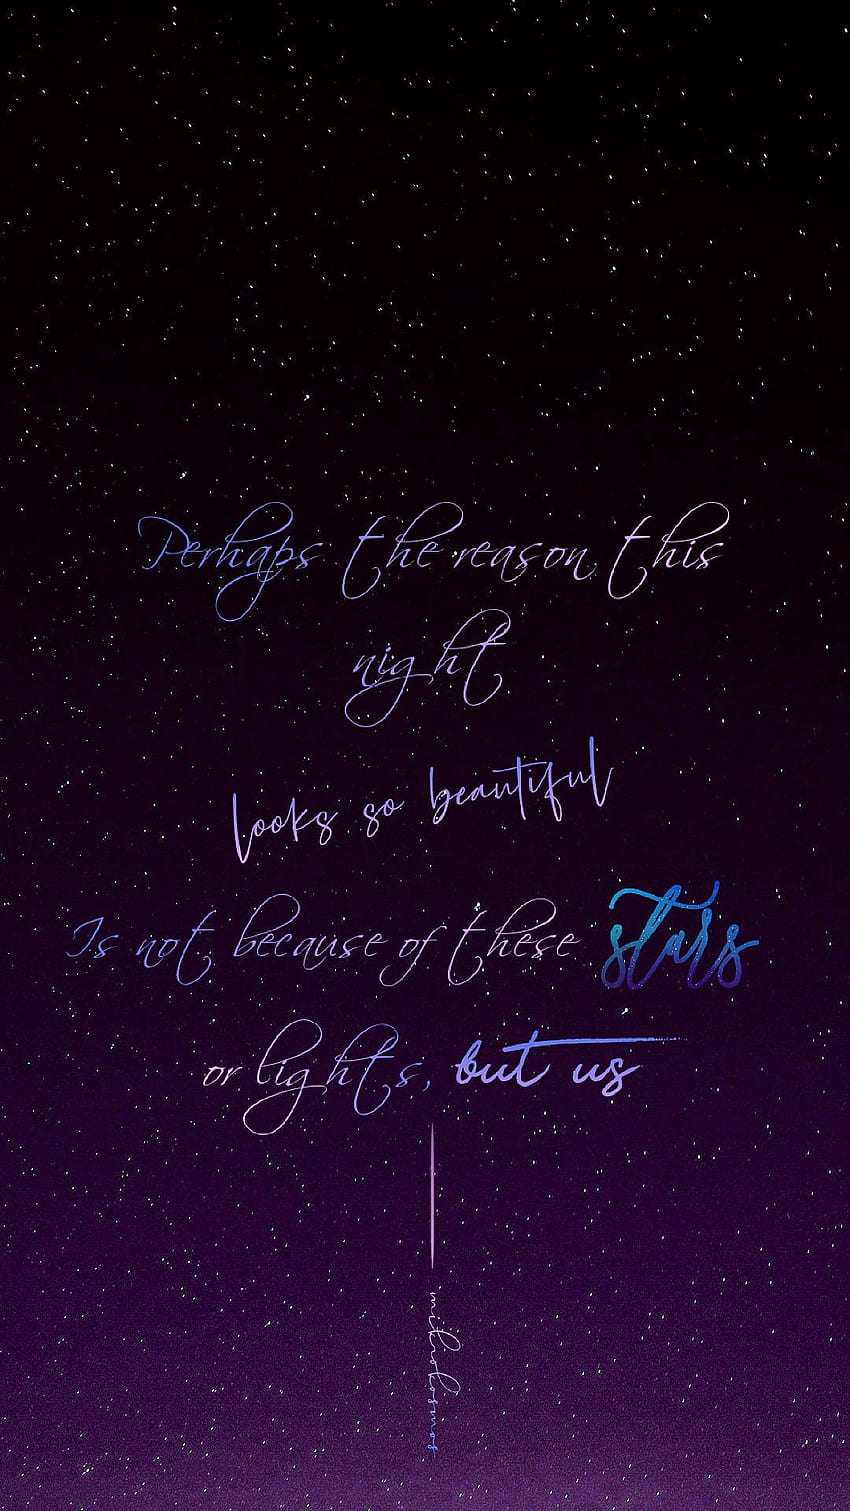 Perhaps the reason this
night
looks so beautiful
Is not because of these stars
or lights, but us
mikrokosmos